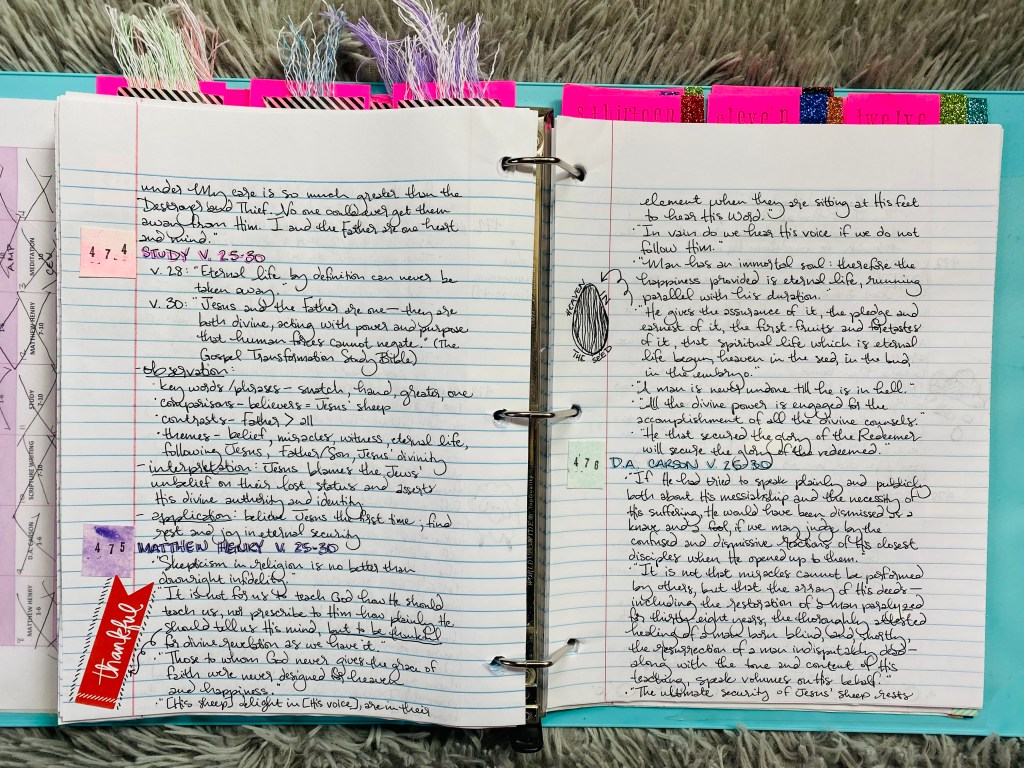 thirteen
eleven
twelve
under My care is so much greater than the
Destroyer and Thief. No one could ever get them
away from Him. I and the Father are one heart
and mind."
474
STUDY V. 25-30
v. 28: "Eternal life by definition can never be
taken away."
v. 30: "Jesus and the Father are one – they are
both divine, acting with power and purpose
that human forces cannot negate." (The
Gospel Transformation Study Bible)
- observation:
· key words/phrases – snatch, hand, greater, one
· comparisons – believers = Jesus' sheep
· contrasts – Father > all
· themes – belief, miracles, witness, eternal life,
following Jesus, Father/Son, Jesus' divinity
- interpretation: Jesus blames the Jews'
unbelief on their lost status and asserts
His divine authority and identity
- application: believe Jesus the first time; find
rest and joy in eternal security
475
MATTHEW HENRY V. 25-30
· "Skepticism in religion is no better than
downright infidelity."
· "It is not for us to teach God how He should
teach us, nor prescribe to Him how plainly He
should tell us His mind, but to be thankful
for divine revelation as we have it."
thankful
· "Those to whom God never gives the grace of
faith were never designed for heaven
and happiness."
· "[His sheep] delight in [His voice], are in their
element when they are sitting at His feet
to hear His Word.
· "In vain do we hear His voice if we do not
follow Him."
· "Man has an immortal soul: therefore the
happiness provided is eternal life, running
parallel with his duration."
· "He gives the assurance of it, the pledge and
earnest of it, the first-fruits and foretastes
of it, that spiritual life which is eternal
life begun, heaven in the seed, in the bud,
in the embryo."
HEAVEN IN
THE SEED
· "A man is never undone till he is in hell."
· "All the divine power is engaged for the
accomplishment of all the divine counsels."
· "He that secured the glory of the Redeemer
will secure the glory of the redeemed."
476
D.A. CARSON V. 25-30
· "If He had tried to speak plainly and publicly
both about His messiahship and the necessity of
His suffering, He would have been dismissed as a
knave and a fool, if we may judge by the
confused and dismissive reactions of His closest
disciples when He opened up to them."
· "It is not that miracles cannot be performed
by others, but that the array of His deeds –
including the restoration of a man paralyzed
for thirty eight years, the thoroughly attested
healing of a man born blind, and, shortly,
the resurrection of a man indisputably dead –
along with the tone and content of His
teaching, speak volumes on His behalf."
· "The ultimate security of Jesus' sheep rests
AMP
MEDITATION
CEV
MATTHEW HENRY
7-10
STUDY
7-10
SCRIPTURE WRITING
D.A. CARSON
1-6
MATTHEW HENRY
1-6